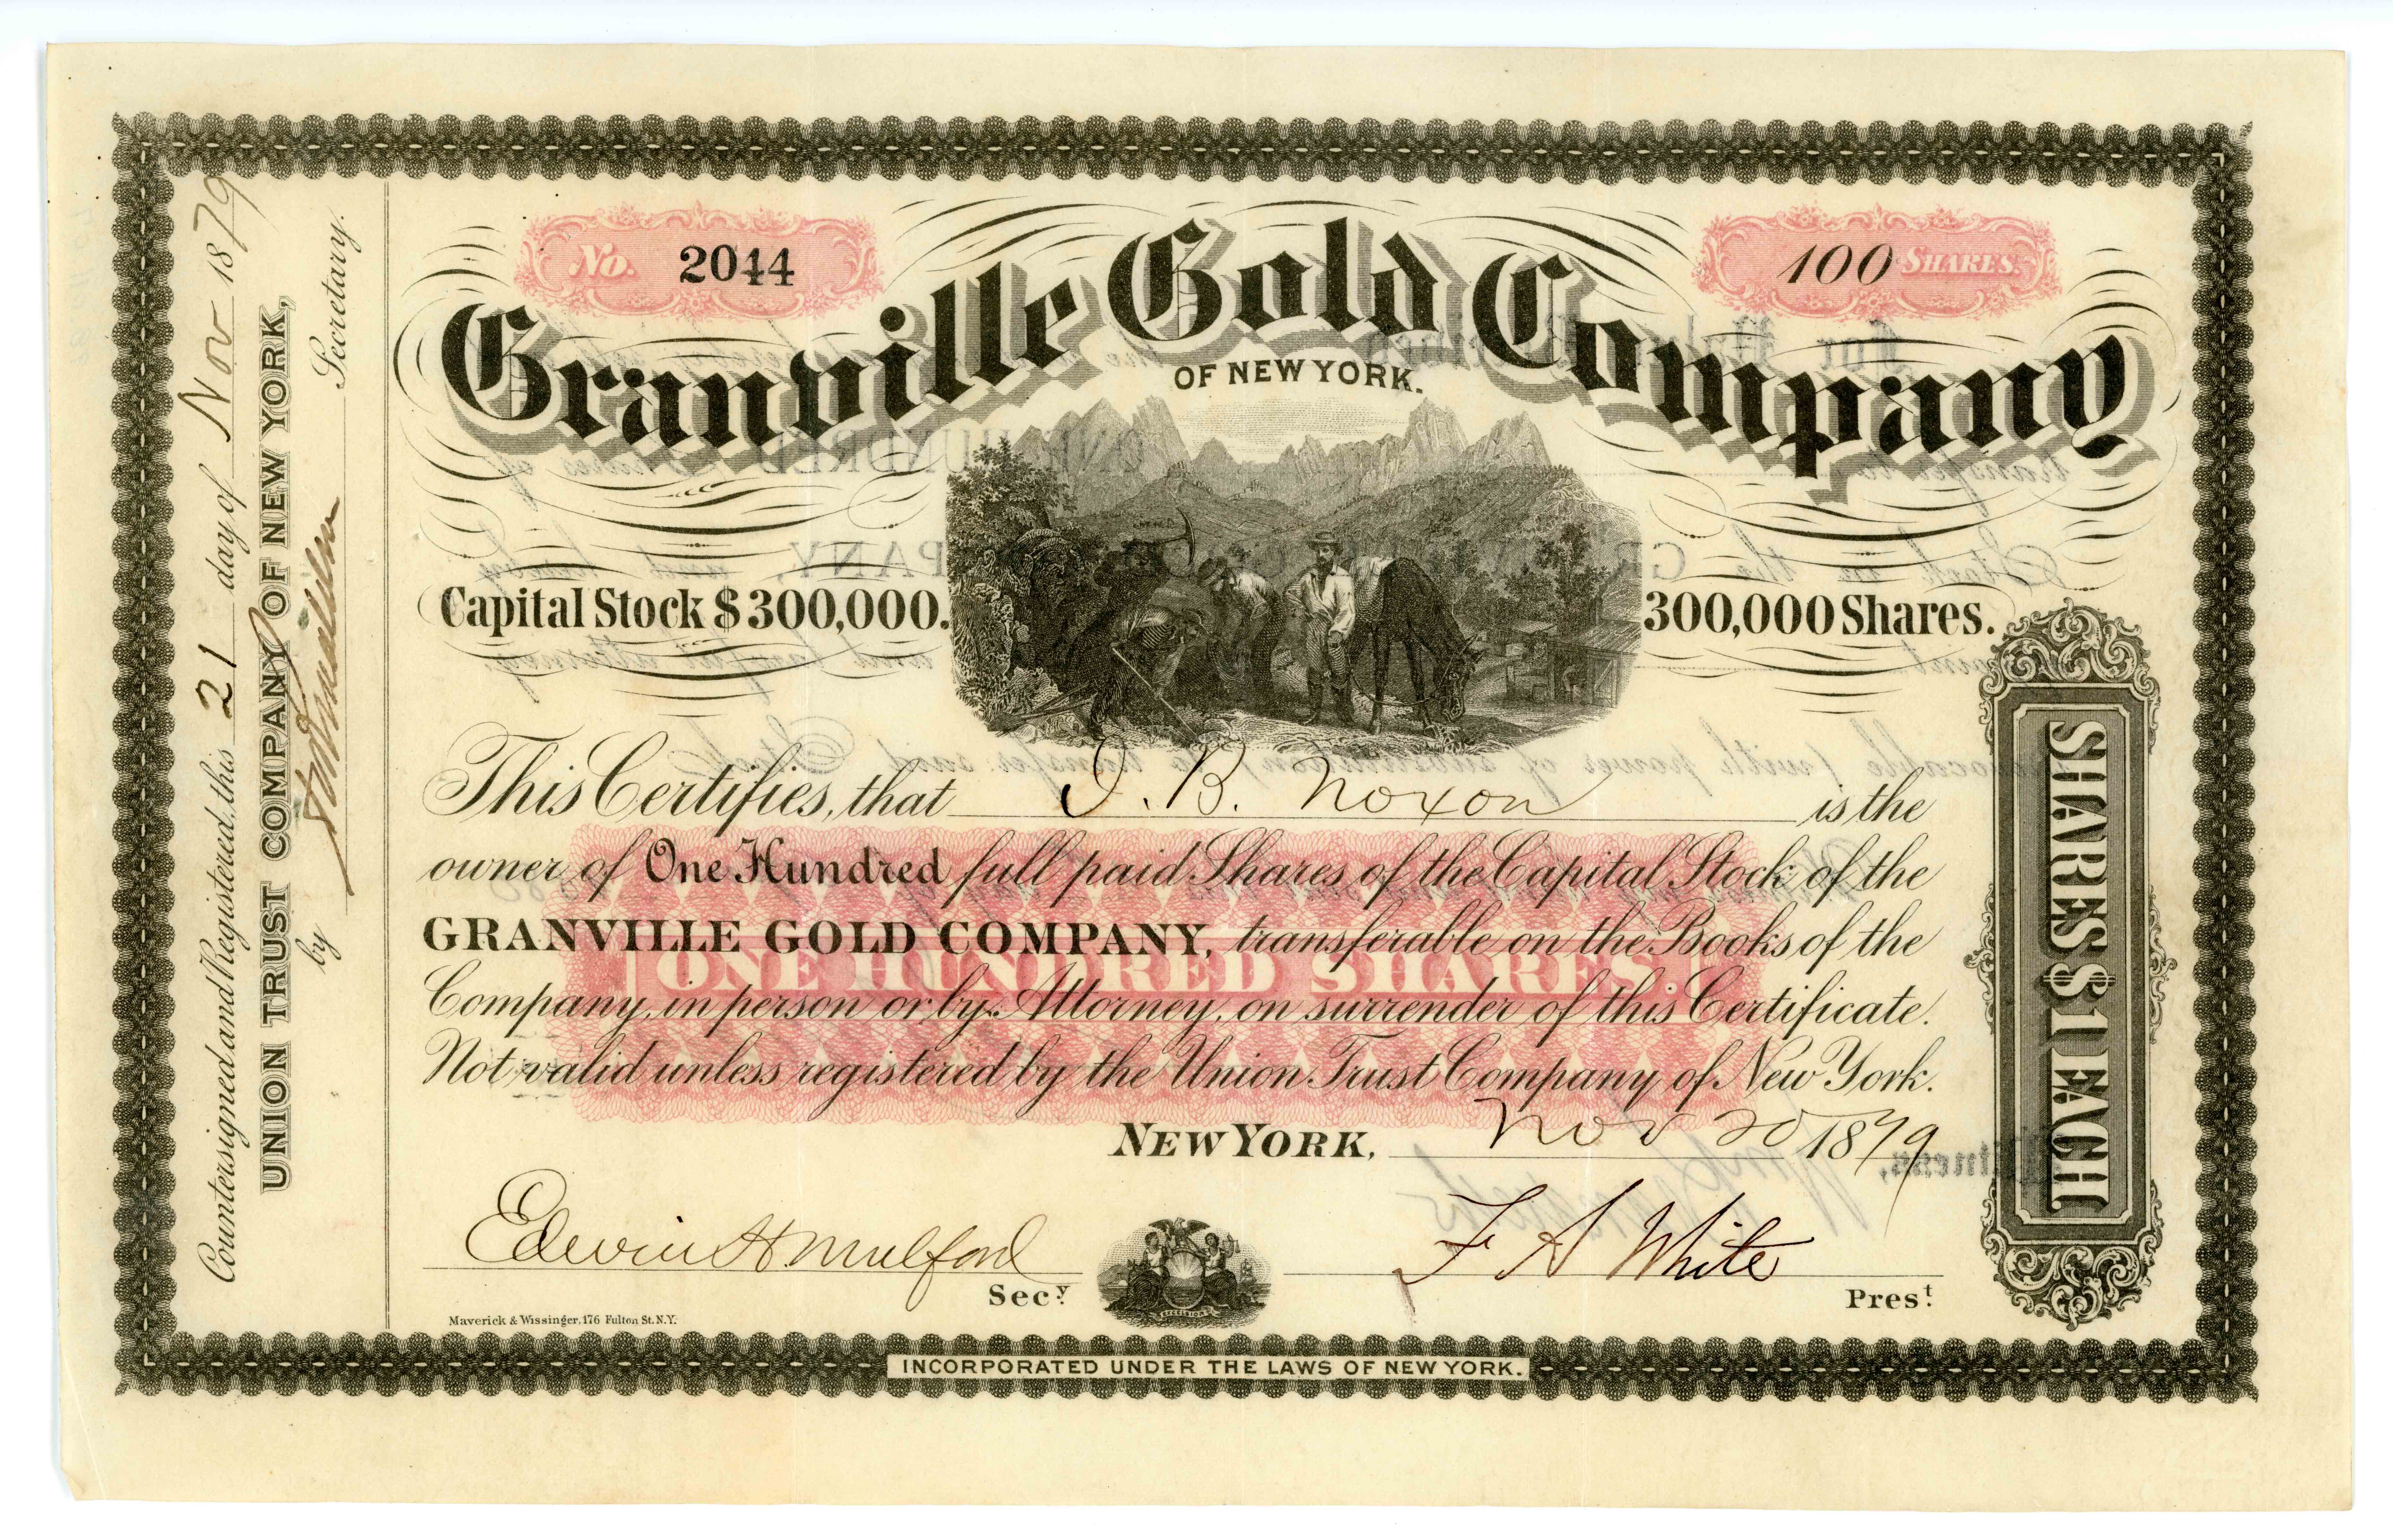 No. 2044
100 SHARES.
Granville Gold Company
OF NEW YORK.
Capital Stock $300,000.
300,000 Shares.
This Certifies, that I. B. Noxon is the
owner of One Hundred full paid Shares of the Capital Stock of the
GRANVILLE GOLD COMPANY, transferable on the Books of the
ONE HUNDRED SHARES.
Company, in person or by Attorney, on surrender of this Certificate.
Not valid unless registered by the Union Trust Company of New York.
NEW YORK, Nov 20 1879
Edwin H Mulford
Secy.
F A White
Prest.
EXCELSIOR
Maverick & Wissinger, 176 Fulton St. N.Y.
INCORPORATED UNDER THE LAWS OF NEW YORK.
SHARES $1 EACH
Countersigned and Registered, this 21 day of Nov 1879
UNION TRUST COMPANY OF NEW YORK,
by
Secretary.